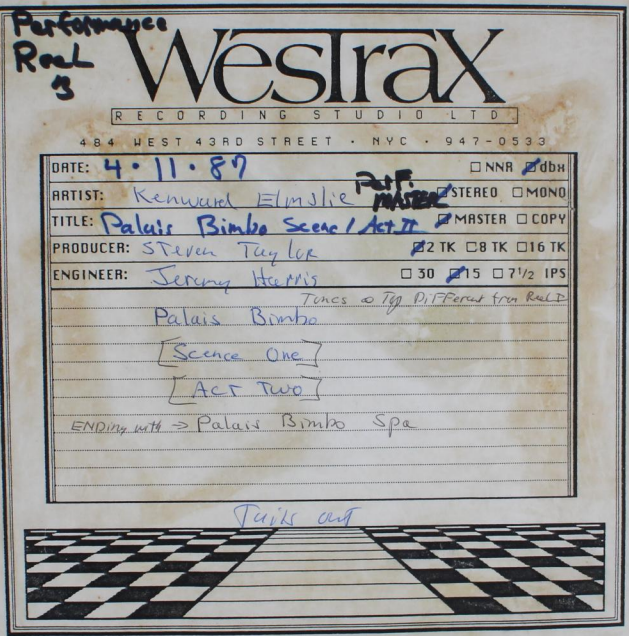 Performance
Reel
3
WESTRAX
RECORDING STUDIO LTD.
484 WEST 43RD STREET · NYC · 947-0533
DATE: 4·11·87 □ NNR ☑ dbx
ARTIST: Kenward Elmslie Perf. MASTER ☑ STEREO □ MONO
TITLE: Palais Bimbo Scene 1 Act II ☑ MASTER □ COPY
PRODUCER: Steven Taylor ☑ 2 TK □ 8 TK □ 16 TK
ENGINEER: Jeremy Harris □ 30 ☑ 15 □ 7 1/2 IPS
Tones @ Top Different from Reel I
Palais Bimbo
[Scence One]
[Act Two]
ENDing with → Palais Bimbo Spa
Tails out